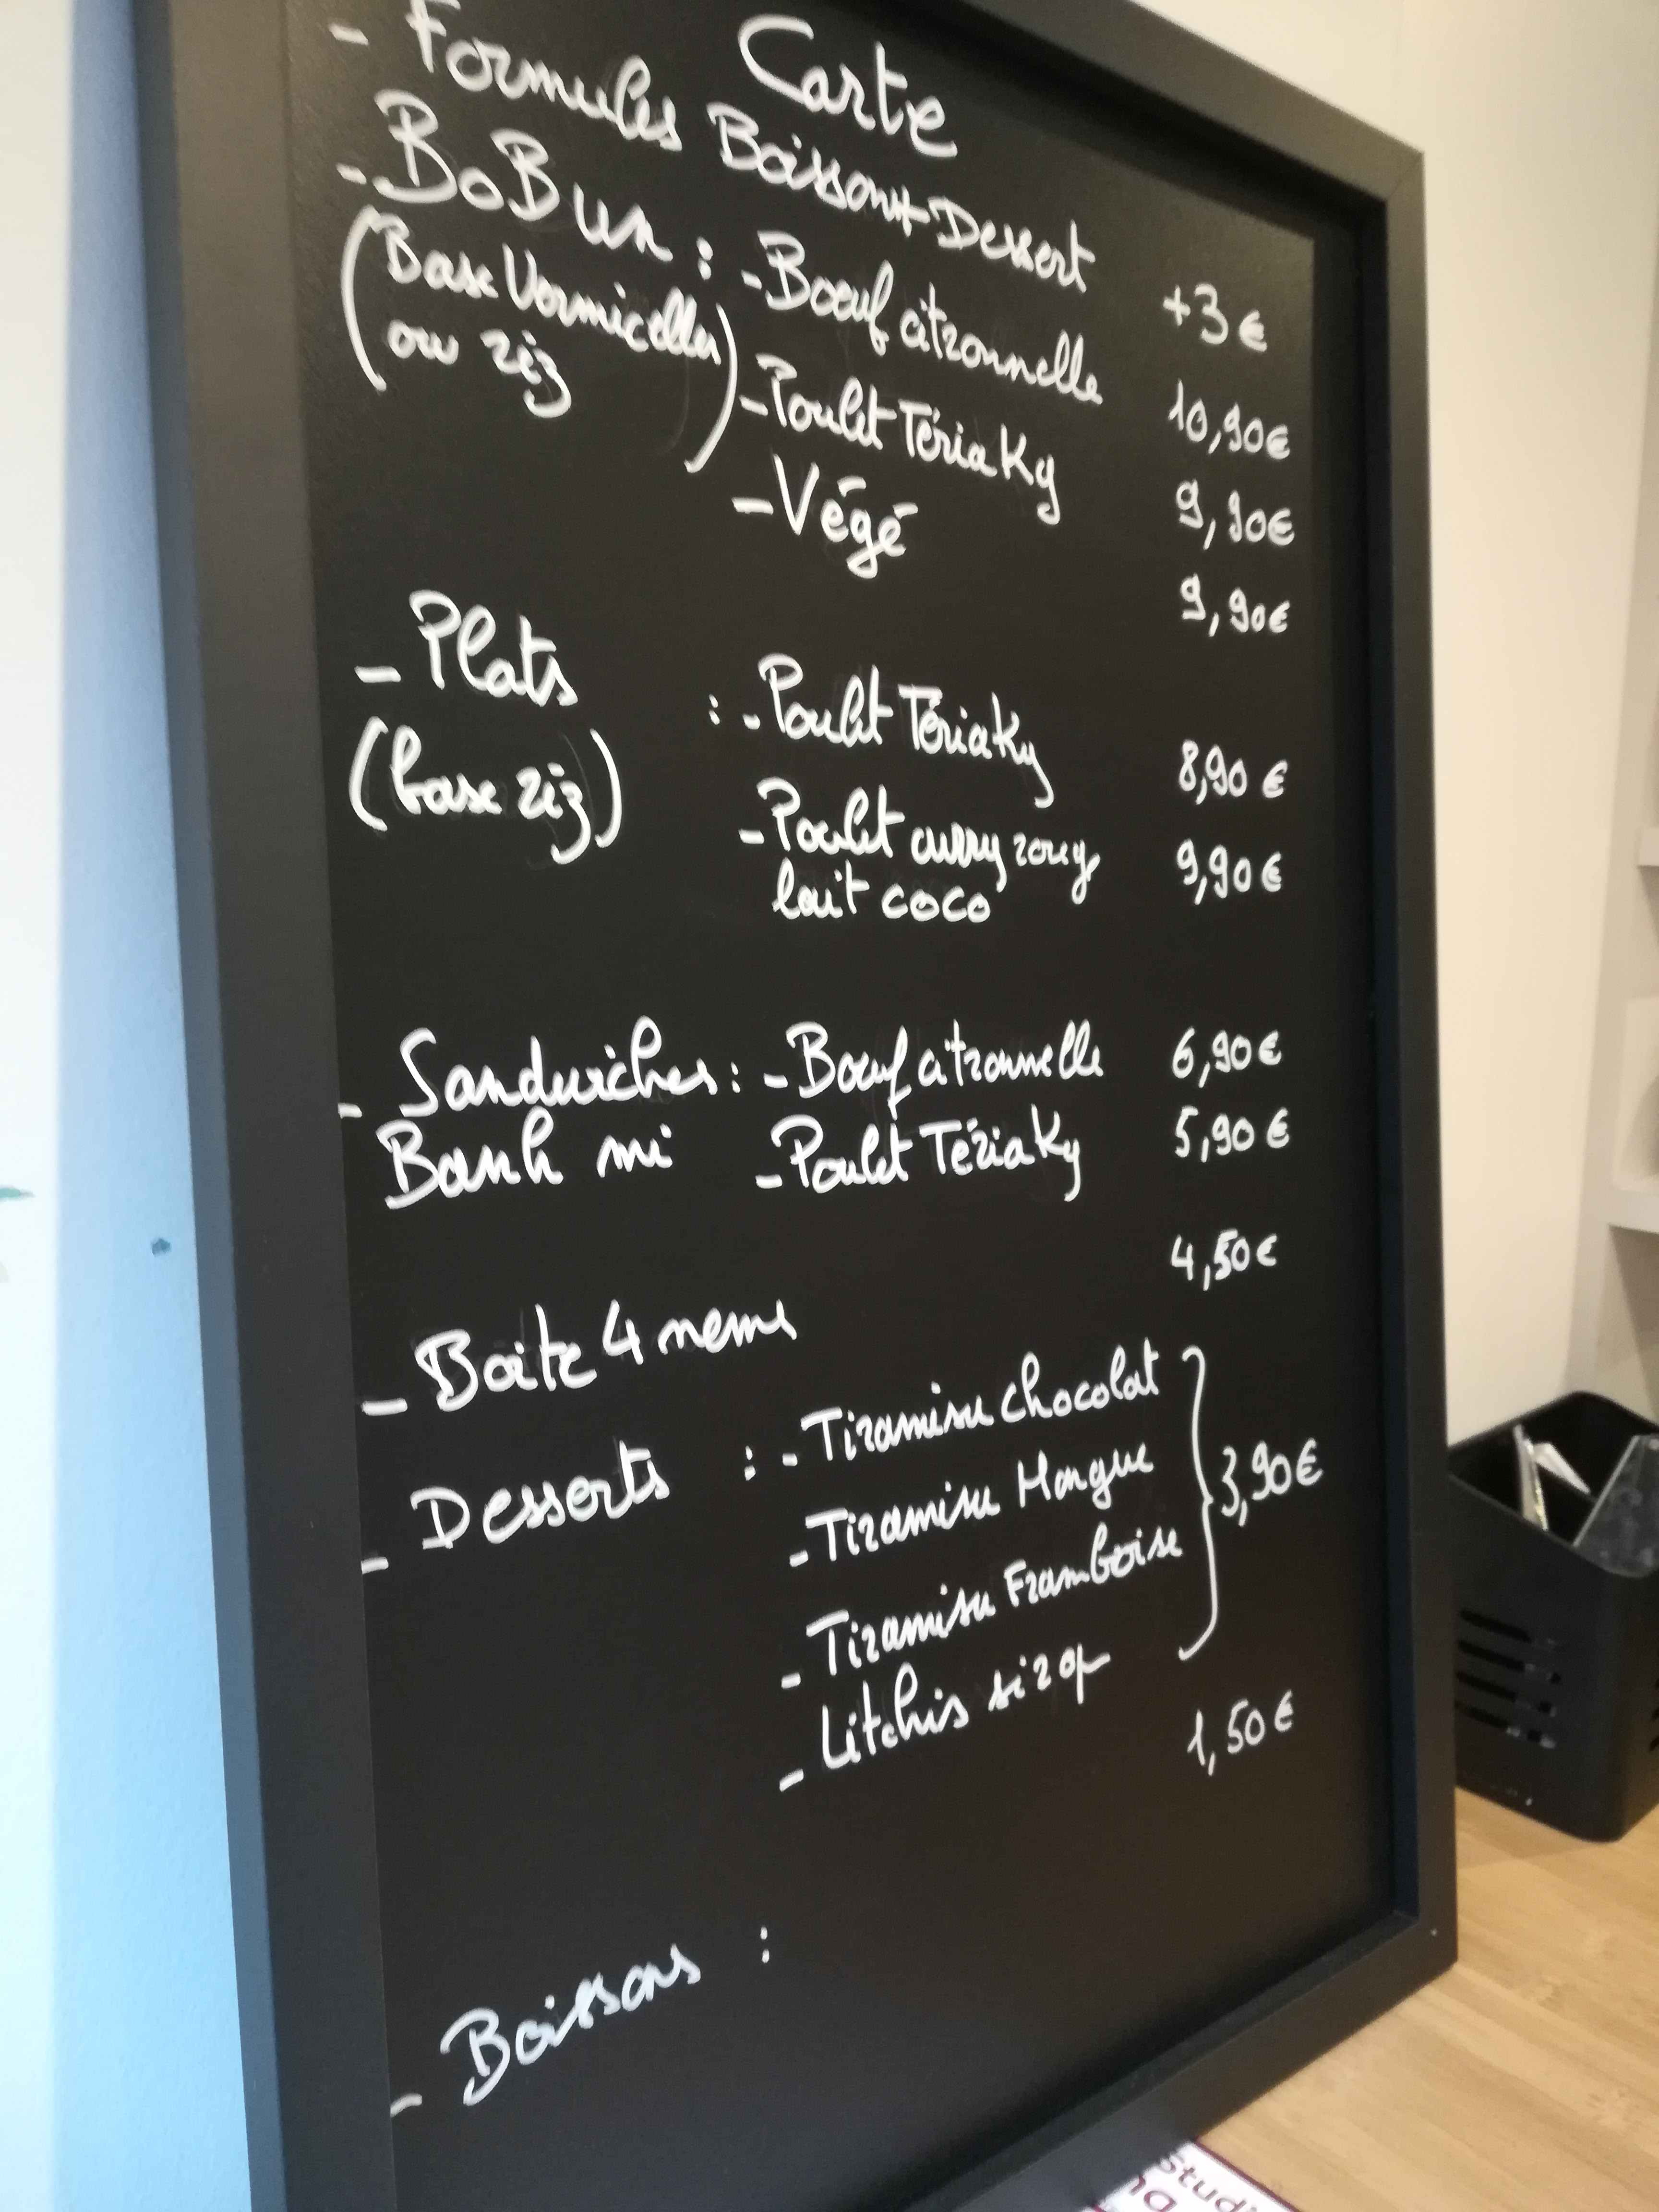 Carte
- Formules Boisson + Dessert +3 €
- BoBun : - Boeuf citronnelle 10,90€
(Base Vermicelles ou riz) - Poulet TériaKy 9,90€
- Végé 9,90€
- Plats : - Poulet TériaKy 8,90 €
(base riz) - Poulet curry rouge 9,90€
lait coco
- Sandwiches : - Boeuf citronnelle 6,90€
Banh mi - Poulet TériaKy 5,90€
- Boite 4 nems 4,50€
- Desserts : - Tiramisu chocolat
- Tiramisu Mangue 3,90€
- Tiramisu Framboise
- Litchis sirop 1,50€
- Boissons :
Studi